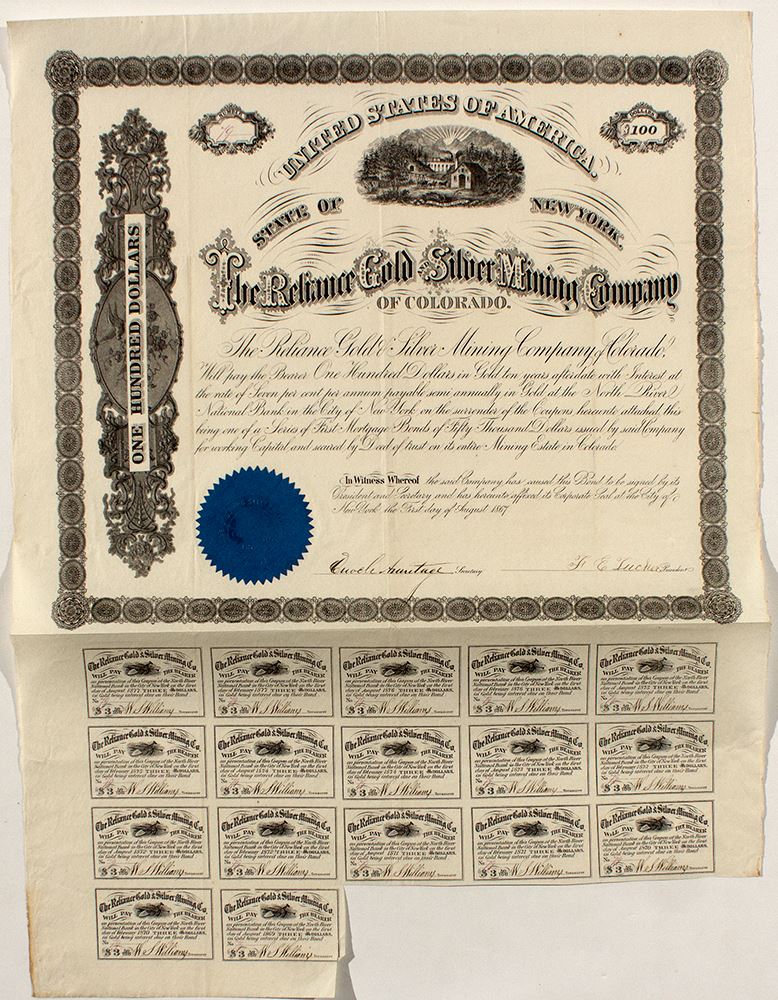 19
DOLLARS
$100
UNITED STATES OF AMERICA.
STATE OF NEW YORK.
The Reliance Gold & Silver Mining Company
OF COLORADO.
ONE HUNDRED DOLLARS
The Reliance Gold & Silver Mining Company of Colorado.
Will pay the Bearer One Hundred Dollars in Gold ten years after date with Interest at
the rate of Seven per cent per annum payable semi annually in Gold at the North River
National Bank in the City of New York on the surrender of the Coupons hereunto attached this
being one of a Series of First Mortgage Bonds of Fifty Thousand Dollars issued by said Company
for working Capital and secured by Deed of trust on its entire Mining Estate in Colorado.
In Witness Whereof the said Company has caused this Bond to be signed by its
President and Secretary and has hereunto affixed its Corporate Seal at the City of
New York the First day of August 1867
Secretary
F E Tucker President
The Reliance Gold & Silver Mining Co.
WILL PAY THE BEARER
on presentation of this Coupon at the North River
National Bank in the City of New York on the first
day of August 1877 THREE DOLLARS,
in Gold being interest due on their Bond
No
$3 W. S. Williams TREASURER
The Reliance Gold & Silver Mining Co.
WILL PAY THE BEARER
on presentation of this Coupon at the North River
National Bank in the City of New York on the first
day of February 1877 THREE DOLLARS,
in Gold being interest due on their Bond
No
$3 W. S. Williams TREASURER
The Reliance Gold & Silver Mining Co.
WILL PAY THE BEARER
on presentation of this Coupon at the North River
National Bank in the City of New York on the first
day of August 1876 THREE DOLLARS,
in Gold being interest due on their Bond
No
$3 W. S. Williams TREASURER
The Reliance Gold & Silver Mining Co.
WILL PAY THE BEARER
on presentation of this Coupon at the North River
National Bank in the City of New York on the first
day of February 1876 THREE DOLLARS,
in Gold being interest due on their Bond
No
$3 W. S. Williams TREASURER
The Reliance Gold & Silver Mining Co.
WILL PAY THE BEARER
on presentation of this Coupon at the North River
National Bank in the City of New York on the first
day of August 1875 THREE DOLLARS,
in Gold being interest due on their Bond
No
$3 W. S. Williams TREASURER
The Reliance Gold & Silver Mining Co.
WILL PAY THE BEARER
on presentation of this Coupon at the North River
National Bank in the City of New York on the first
day of February 1875 THREE DOLLARS,
in Gold being interest due on their Bond
No
$3 W. S. Williams TREASURER
The Reliance Gold & Silver Mining Co.
WILL PAY THE BEARER
on presentation of this Coupon at the North River
National Bank in the City of New York on the first
day of August 1874 THREE DOLLARS,
in Gold being interest due on their Bond
No
$3 W. S. Williams TREASURER
The Reliance Gold & Silver Mining Co.
WILL PAY THE BEARER
on presentation of this Coupon at the North River
National Bank in the City of New York on the first
day of February 1874 THREE DOLLARS,
in Gold being interest due on their Bond
No
$3 W. S. Williams TREASURER
The Reliance Gold & Silver Mining Co.
WILL PAY THE BEARER
on presentation of this Coupon at the North River
National Bank in the City of New York on the first
day of August 1873 THREE DOLLARS,
in Gold being interest due on their Bond
No
$3 W. S. Williams TREASURER
The Reliance Gold & Silver Mining Co.
WILL PAY THE BEARER
on presentation of this Coupon at the North River
National Bank in the City of New York on the first
day of February THREE DOLLARS,
in Gold being interest due on their Bond
No
$3 W. S. Williams TREASURER
The Reliance Gold & Silver Mining Co.
WILL PAY THE BEARER
on presentation of this Coupon at the North River
National Bank in the City of New York on the first
day of August 1872 THREE DOLLARS,
in Gold being interest due on their Bond
No
$3 W. S. Williams TREASURER
The Reliance Gold & Silver Mining Co.
WILL PAY THE BEARER
on presentation of this Coupon at the North River
National Bank in the City of New York on the first
day of February 1872 THREE DOLLARS,
in Gold being interest due on their Bond
No
$3 W. S. Williams TREASURER
The Reliance Gold & Silver Mining Co.
WILL PAY THE BEARER
on presentation of this Coupon at the North River
National Bank in the City of New York on the first
day of August 1871 THREE DOLLARS,
in Gold being interest due on their Bond
No
$3 W. S. Williams TREASURER
The Reliance Gold & Silver Mining Co.
WILL PAY THE BEARER
on presentation of this Coupon at the North River
National Bank in the City of New York on the first
day of February 1871 THREE DOLLARS,
in Gold being interest due on their Bond
No
$3 W. S. Williams TREASURER
The Reliance Gold & Silver Mining Co.
WILL PAY THE BEARER
on presentation of this Coupon at the North River
National Bank in the City of New York on the first
day of August 1870 THREE DOLLARS,
in Gold being interest due on their Bond
No
$3 W. S. Williams TREASURER
The Reliance Gold & Silver Mining Co.
WILL PAY THE BEARER
on presentation of this Coupon at the North River
National Bank in the City of New York on the first
day of February 1870 THREE DOLLARS,
in Gold being interest due on their Bond
No
$3 W. S. Williams TREASURER
The Reliance Gold & Silver Mining Co.
WILL PAY THE BEARER
on presentation of this Coupon at the North River
National Bank in the City of New York on the first
day of August 1869 THREE DOLLARS,
in Gold being interest due on their Bond
No
$3 W. S. Williams TREASURER